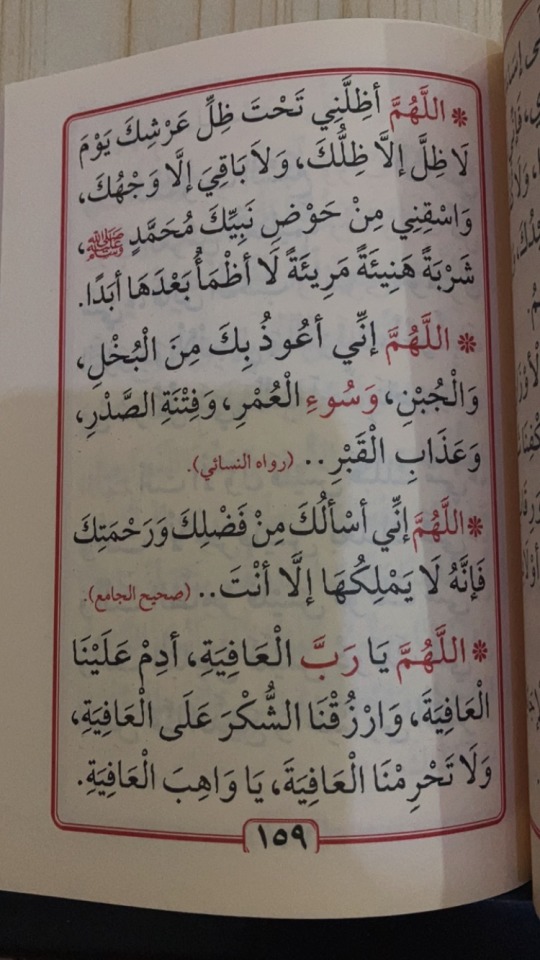 * اللَّهُمَّ أَظِلَّنِي تَحْتَ ظِلِّ عَرْشِكَ يَوْمَ
لَا ظِلَّ إِلَّا ظِلُّكَ، وَلَا بَاقِيَ إِلَّا وَجْهُكَ،
وَاسْقِنِي مِنْ حَوْضِ نَبِيِّكَ مُحَمَّدٍ ﷺ،
شَرْبَةً هَنِيئَةً مَرِيئَةً لَا أَظْمَأُ بَعْدَهَا أَبَدًا.
* اللَّهُمَّ إِنِّي أَعُوذُ بِكَ مِنَ الْبُخْلِ،
وَالْجُبْنِ، وَسُوءِ الْعُمْرِ، وَفِتْنَةِ الصَّدْرِ،
وَعَذَابِ الْقَبْرِ.. (رواه النسائي).
* اللَّهُمَّ إِنِّي أَسْأَلُكَ مِنْ فَضْلِكَ وَرَحْمَتِكَ
فَإِنَّهُ لَا يَمْلِكُهَا إِلَّا أَنْتَ.. (صحيح الجامع).
* اللَّهُمَّ يَا رَبَّ الْعَافِيَةِ، أَدِمْ عَلَيْنَا
الْعَافِيَةَ، وَارْزُقْنَا الشُّكْرَ عَلَى الْعَافِيَةِ،
وَلَا تَحْرِمْنَا الْعَافِيَةَ، يَا وَاهِبَ الْعَافِيَةِ.
١٥٩